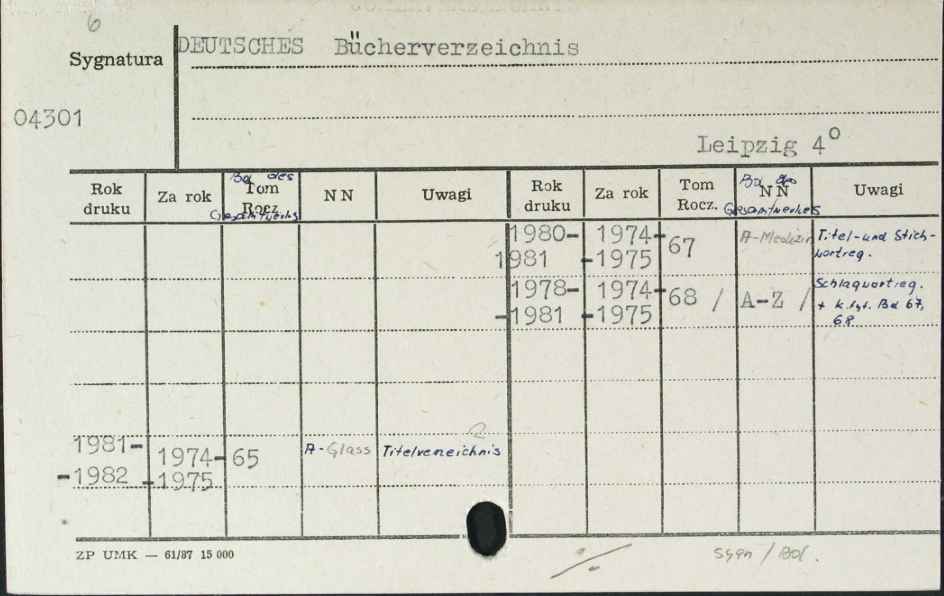 6
Sygnatura
DEUTSCHES Bücherverzeichnis
04301
Leipzig 4°
Rok druku
Za rok
Tom Rocz.
Bd des Gesamtwerks
NN
Uwagi
Rok druku
Za rok
Tom Rocz.
NN
Gesamtwerkes
Uwagi
1980-1981
1974-1975
67
A-Medizin
Titel-und Stich-
wortreg.
1978-
-1981
1974-
-1975
68 /
A-Z /
Schlagwortreg.
+ Bd 67,
68
1981-
-1982
1974-
-1975
65
A-Glass
Titelverzeichnis
ZP UMK — 61/87 15 000